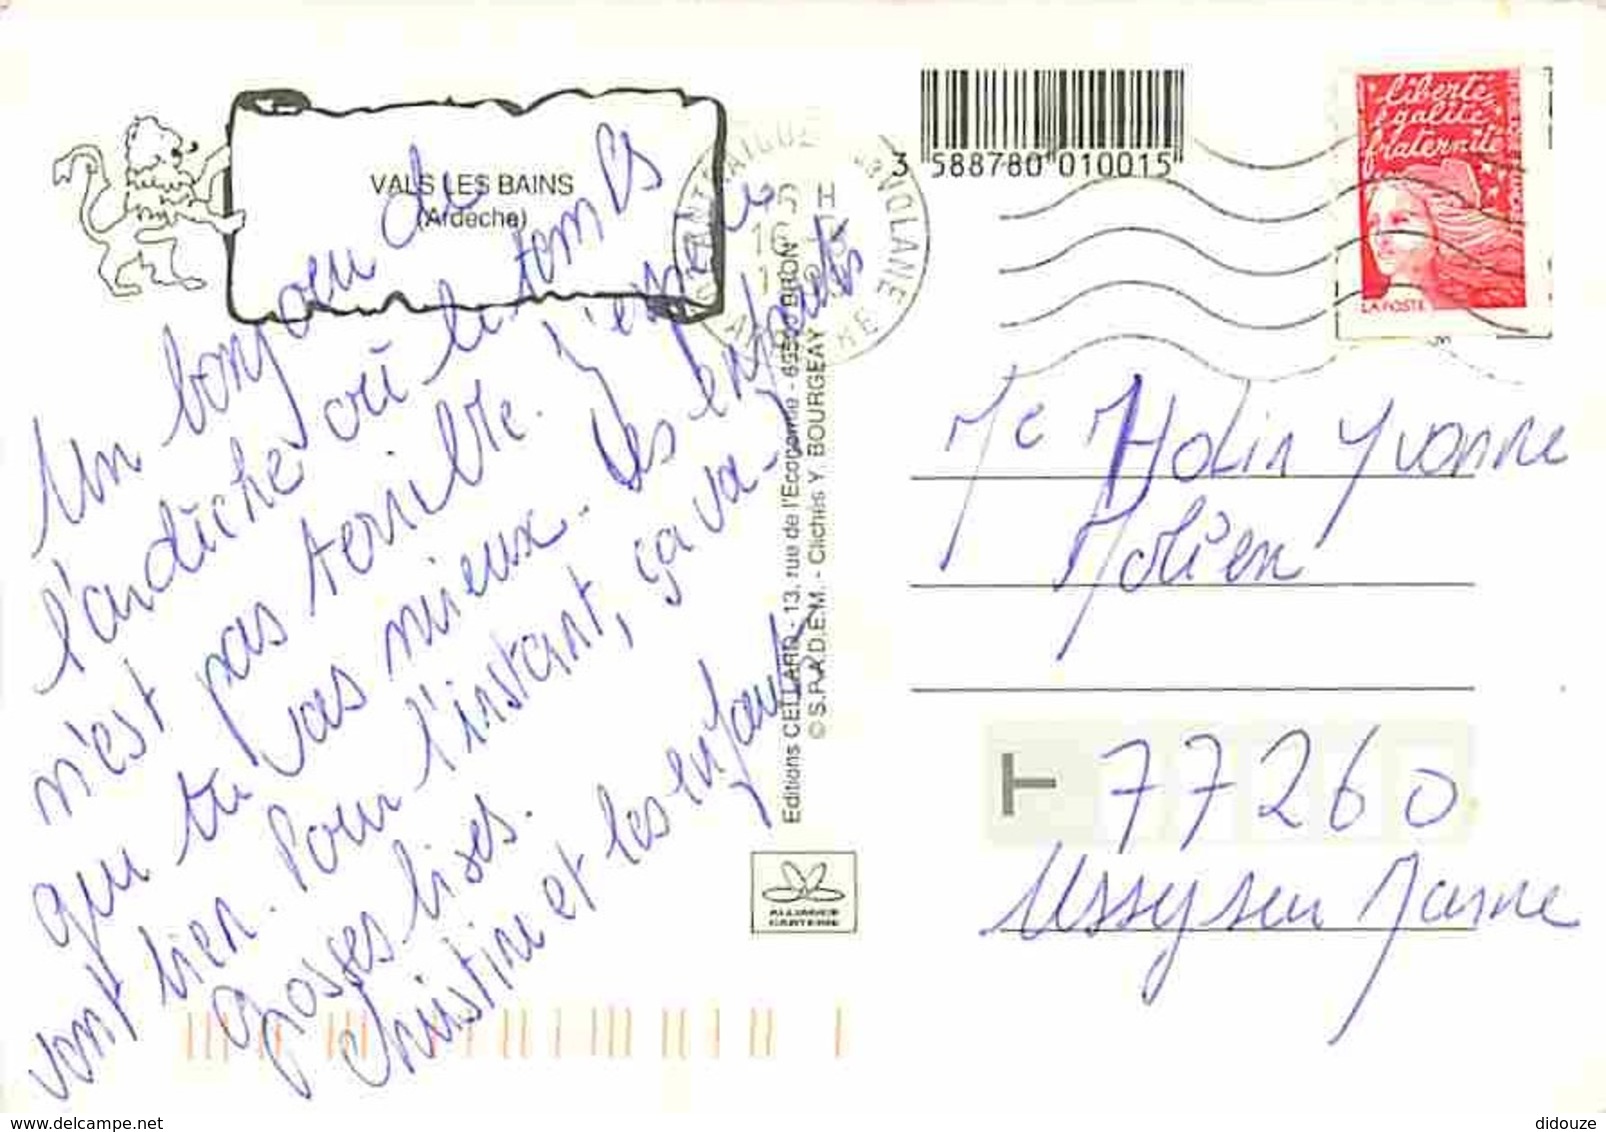 VALS LES BAINS
(Ardèche)
Un bonjour de
l'ardèche où le temps
n'est pas terrible. J'espère
que tu vas mieux. Les enfants
vont bien. Pour l'instant, ça va.
Grosses bises.
Christine et les enfants
Editions CELLARD - 13, rue de l'Economie - 69500 BRON
© S.P.A.D.E.M. - Clichés Y. BOURGEAY
ALLIANCE
CARTERIE
3 588780 010015
VOLANE
liberté
égalité
fraternité
LA POSTE
Me Holin Yvonne
Molien
T 77260
Ussy sur Marne
didouze